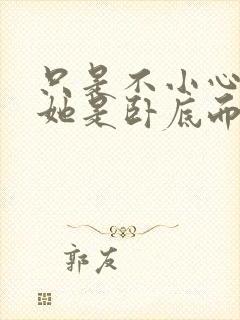 只是不小心
她是卧底而
郭友